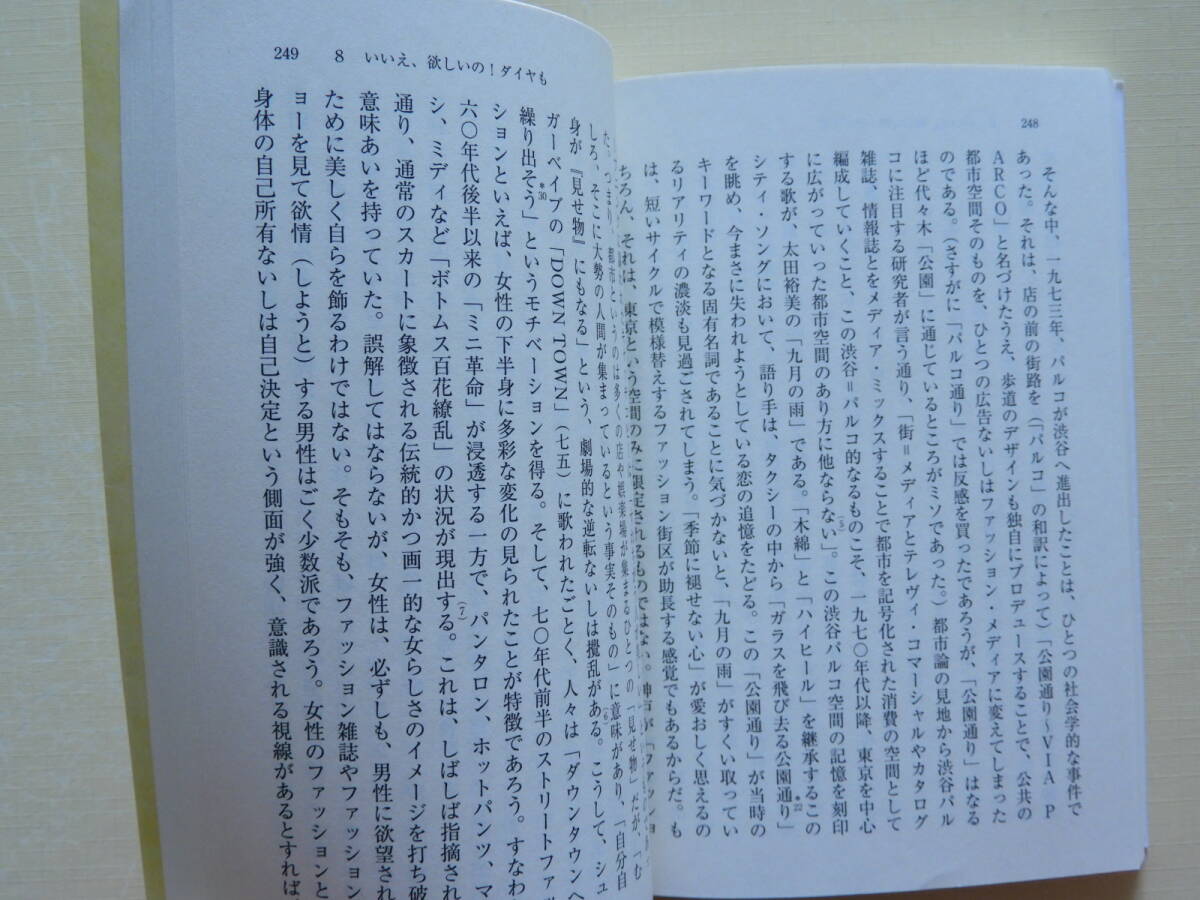 248
そんな中、一九七三年、パルコが渋谷へ進出したことは、ひとつの社会学的な事件で
あった。それは、店の前の街路を（「パルコ」の和訳によって）「公園通り～ＶＩＡ　Ｐ
ＡＲＣＯ」と名づけたうえ、歩道のデザインも独自にプロデュースすることで、公共の
都市空間そのものを、ひとつの広告ないしはファッション・メディアに変えてしまった
のである。（さすがに「パルコ通り」では反感を買ったであろうが、「公園通り」はなる
ほど代々木「公園」に通じているところがミソであった。）都市論の見地から渋谷パル
コに注目する研究者が言う通り、「街＝メディアとテレヴィ・コマーシャルやカタログ
雑誌、情報誌とをメディア・ミックスすることで都市を記号化された消費の空間として
編成していくこと、この渋谷＝パルコ的なるものこそ、一九七〇年代以降、東京を中心
に広がっていった都市空間のあり方に他ならない」(5)。この渋谷パルコ空間の記憶を刻印
する歌が、太田裕美の「九月の雨」である。「木綿」と「ハイヒール」を継承するこの
シティ・ソングにおいて、語り手は、タクシーの中から「ガラスを飛び去る公園通り」*22
を眺め、今まさに失われようとしている恋の追憶をたどる。この「公園通り」が当時の
キーワードとなる固有名詞であることに気づかないと、「九月の雨」がすくい取ってい
るリアリティの濃淡も見過ごされてしまう。「季節に褪せない心」が愛おしく思えるの
は、短いサイクルで模様替えするファッション街区が助長する感覚でもあるからだ。も
ちろん、それは、東京という空間のみに限定されるものではない。神戸が「ファッショ
249　8　いいえ、欲しいの！ダイヤも
た。つまり、都市というのは多くの店や娯楽場が集まるひとつの「見せ物」だが、「む
しろ、そこに大勢の人間が集まっているという事実そのもの」に意味があり、(6)「自分自
身が『見せ物』にもなる」という、劇場的な逆転ないしは攪乱がある。こうして、シュ
ガーベイブの「ＤＯＷＮ ＴＯＷＮ」（七五）に歌われたごとく、人々は「ダウンタウンへ
繰り出そう」*30というモチベーションを得る。そして、七〇年代前半のストリートファ
ションといえば、女性の下半身に多彩な変化の見られたことが特徴であろう。すなわ
六〇年代後半以来の「ミニ革命」が浸透する一方で、パンタロン、ホットパンツ、マ
シ、ミディなど「ボトムス百花繚乱」の状況が現出する。(7)これは、しばしば指摘され
通り、通常のスカートに象徴される伝統的かつ画一的な女らしさのイメージを打ち破
意味あいを持っていた。誤解してはならないが、女性は、必ずしも、男性に欲望され
ために美しく自らを飾るわけではない。そもそも、ファッション雑誌やファッション
ョーを見て欲情（しようと）する男性はごく少数派であろう。女性のファッションと
身体の自己所有ないしは自己決定という側面が強く、意識される視線があるとすれば